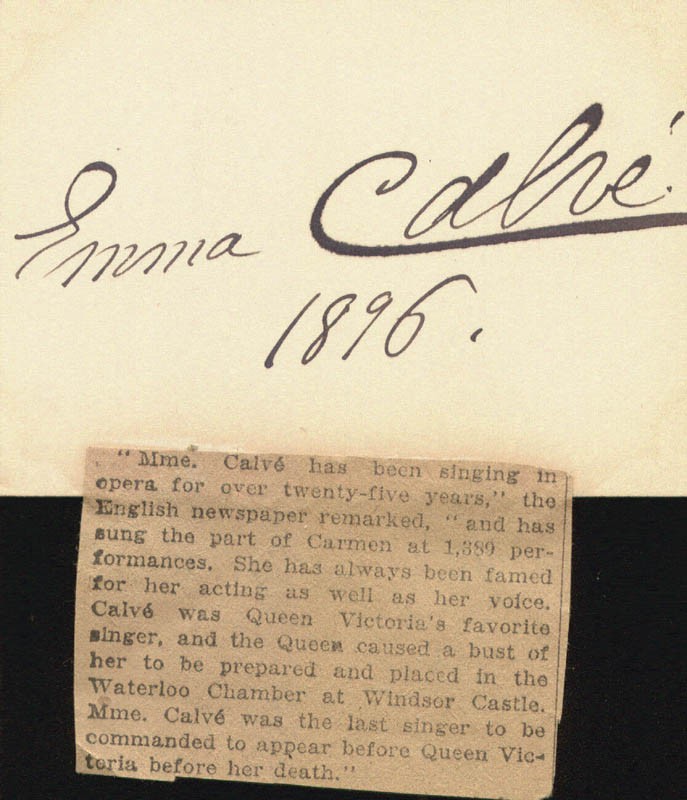 Emma Calvé.
1896.
"Mme. Calvé has been singing in
opera for over twenty-five years," the
English newspaper remarked, "and has
sung the part of Carmen at 1,389 per-
formances. She has always been famed
for her acting as well as her voice.
Calvé was Queen Victoria's favorite
singer, and the Queen caused a bust of
her to be prepared and placed in the
Waterloo Chamber at Windsor Castle.
Mme. Calvé was the last singer to be
commanded to appear before Queen Vic-
toria before her death."